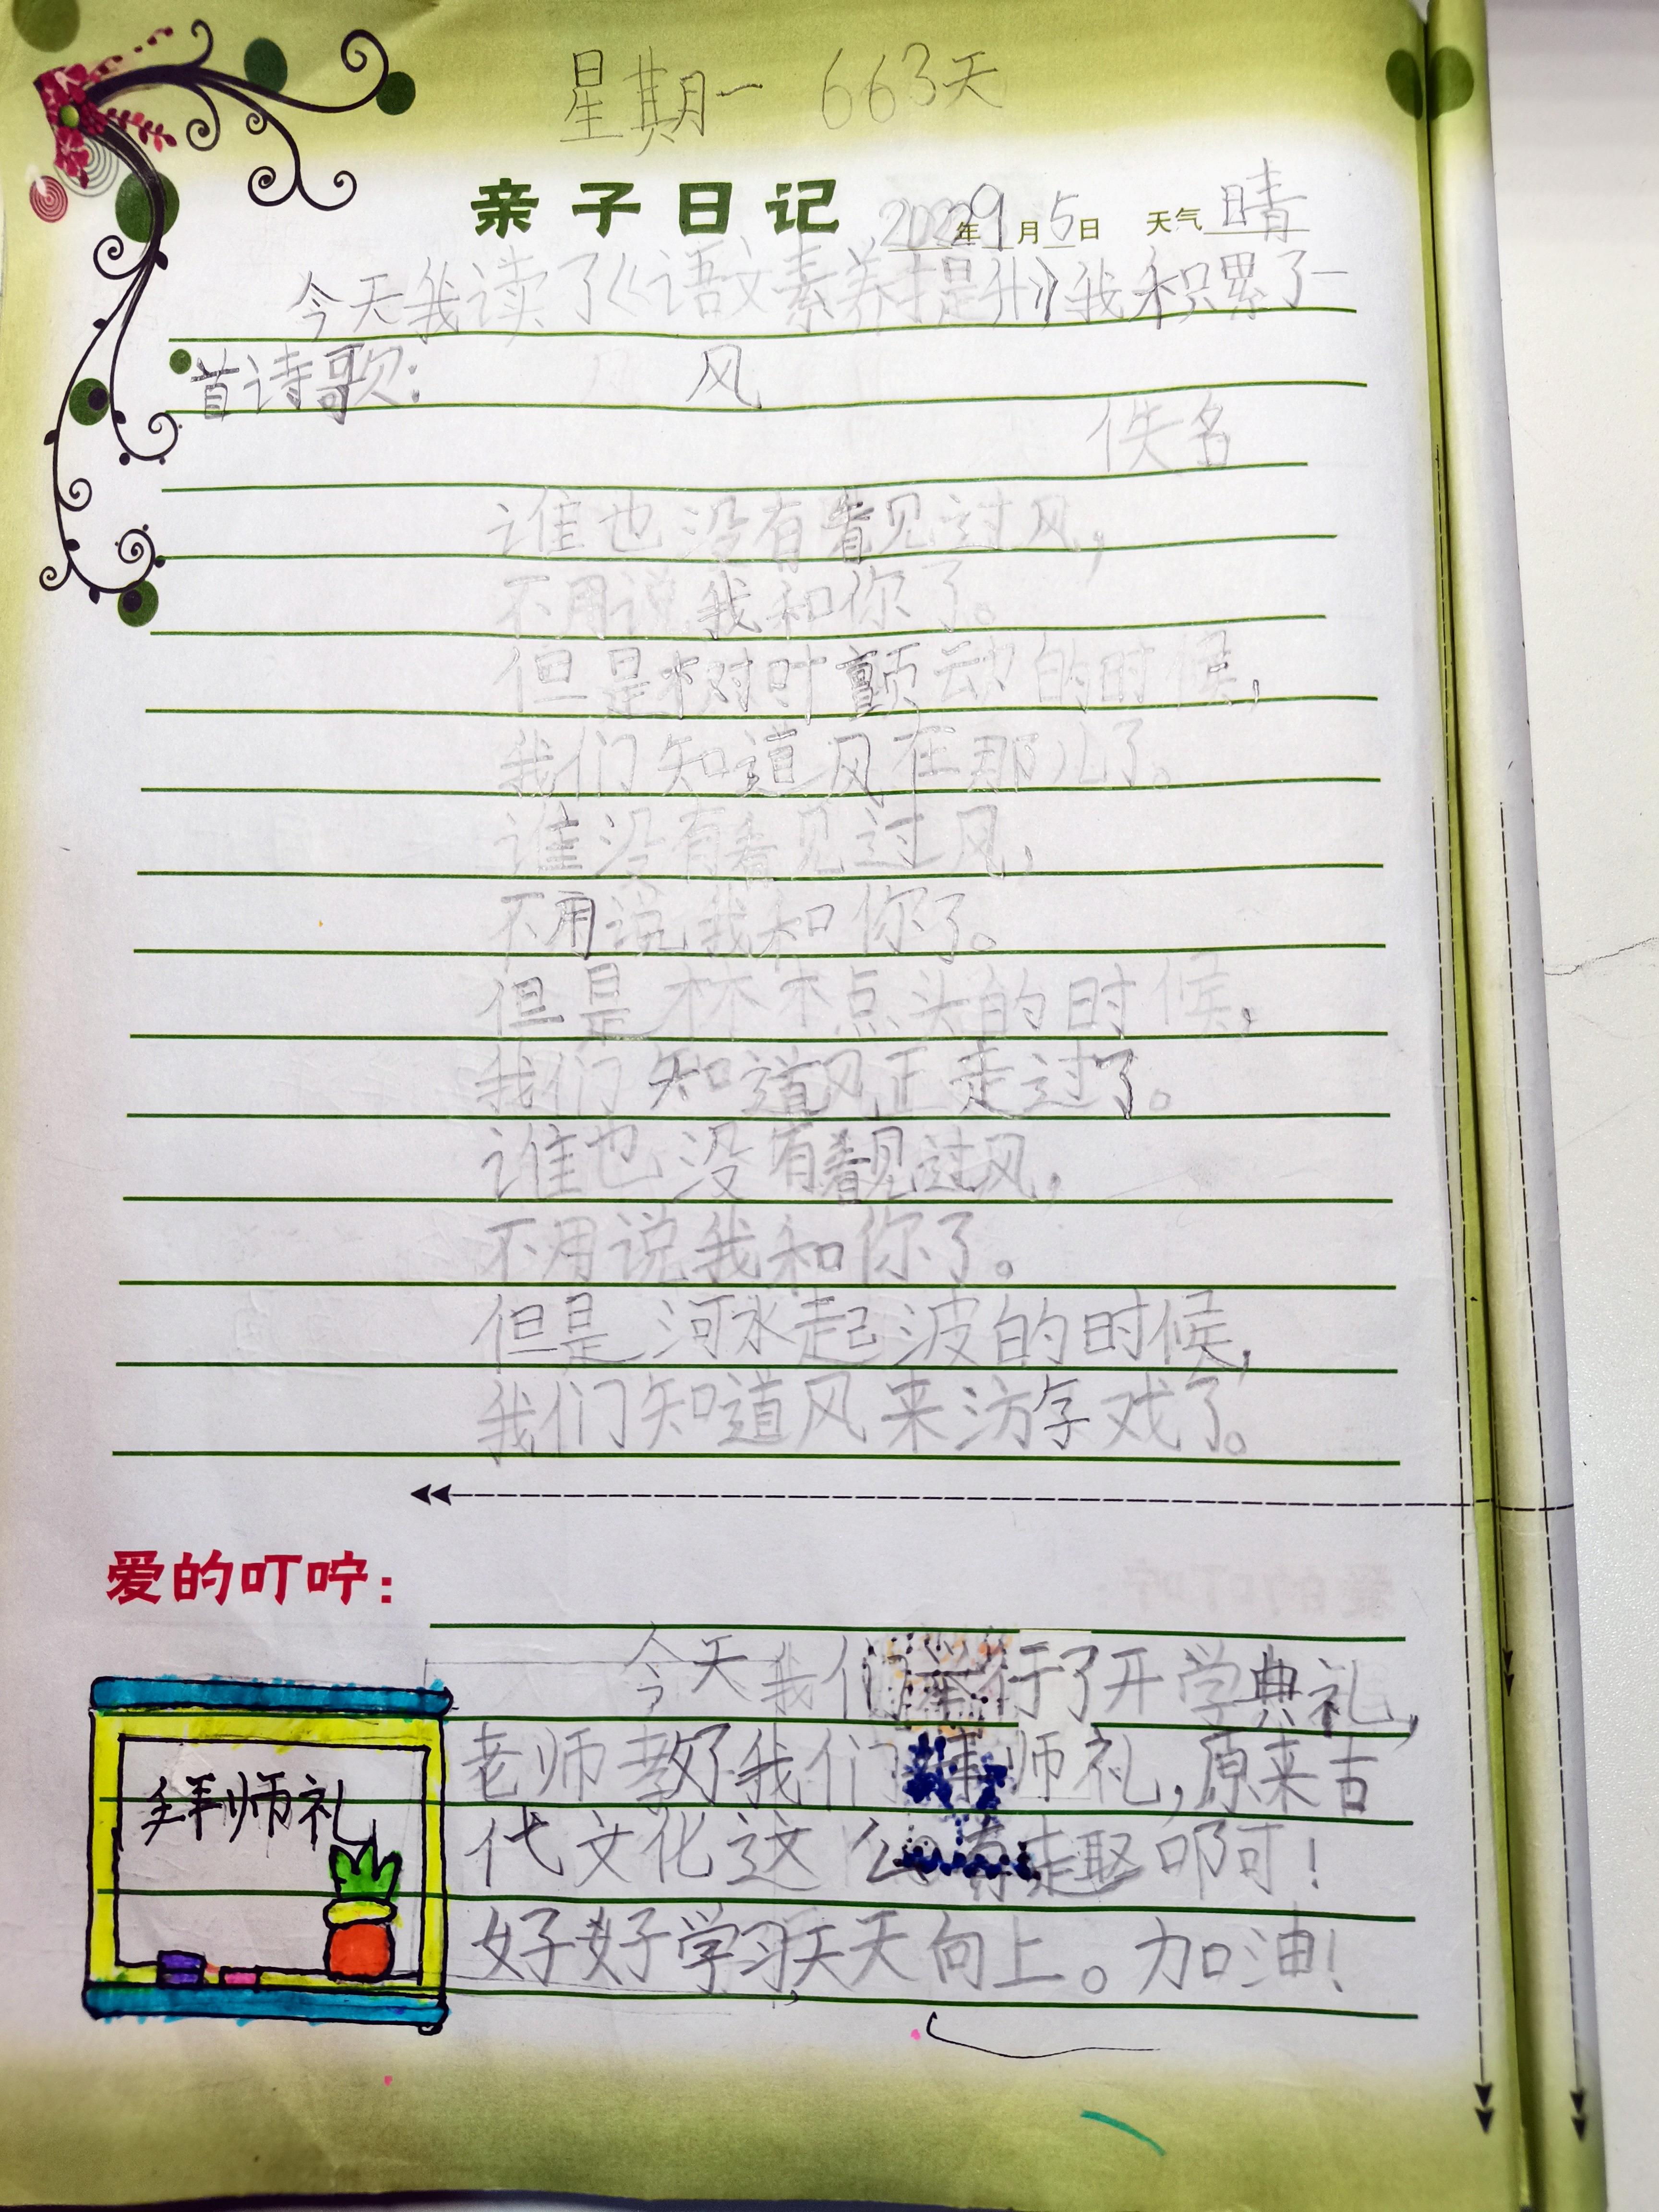 星期一 663天
亲子日记 2022年9月5日 天气 晴
今天我读了《语文素养提升》我积累了一
首诗歌： 风
佚名
谁也没有看见过风，
不用说我和你了。
但是树叶颤动的时候，
我们知道风在那儿了。
谁没有看见过风，
不用说我和你了。
但是林木点头的时候，
我们知道风正走过了。
谁也没有看见过风，
不用说我和你了。
但是河水起波的时候，
我们知道风来游戏了。
爱的叮咛：
今天我们举行了开学典礼，
老师教了我们拜师礼，原来古
代文化这么有趣啊！
好好学习，天天向上。加油！
拜师礼